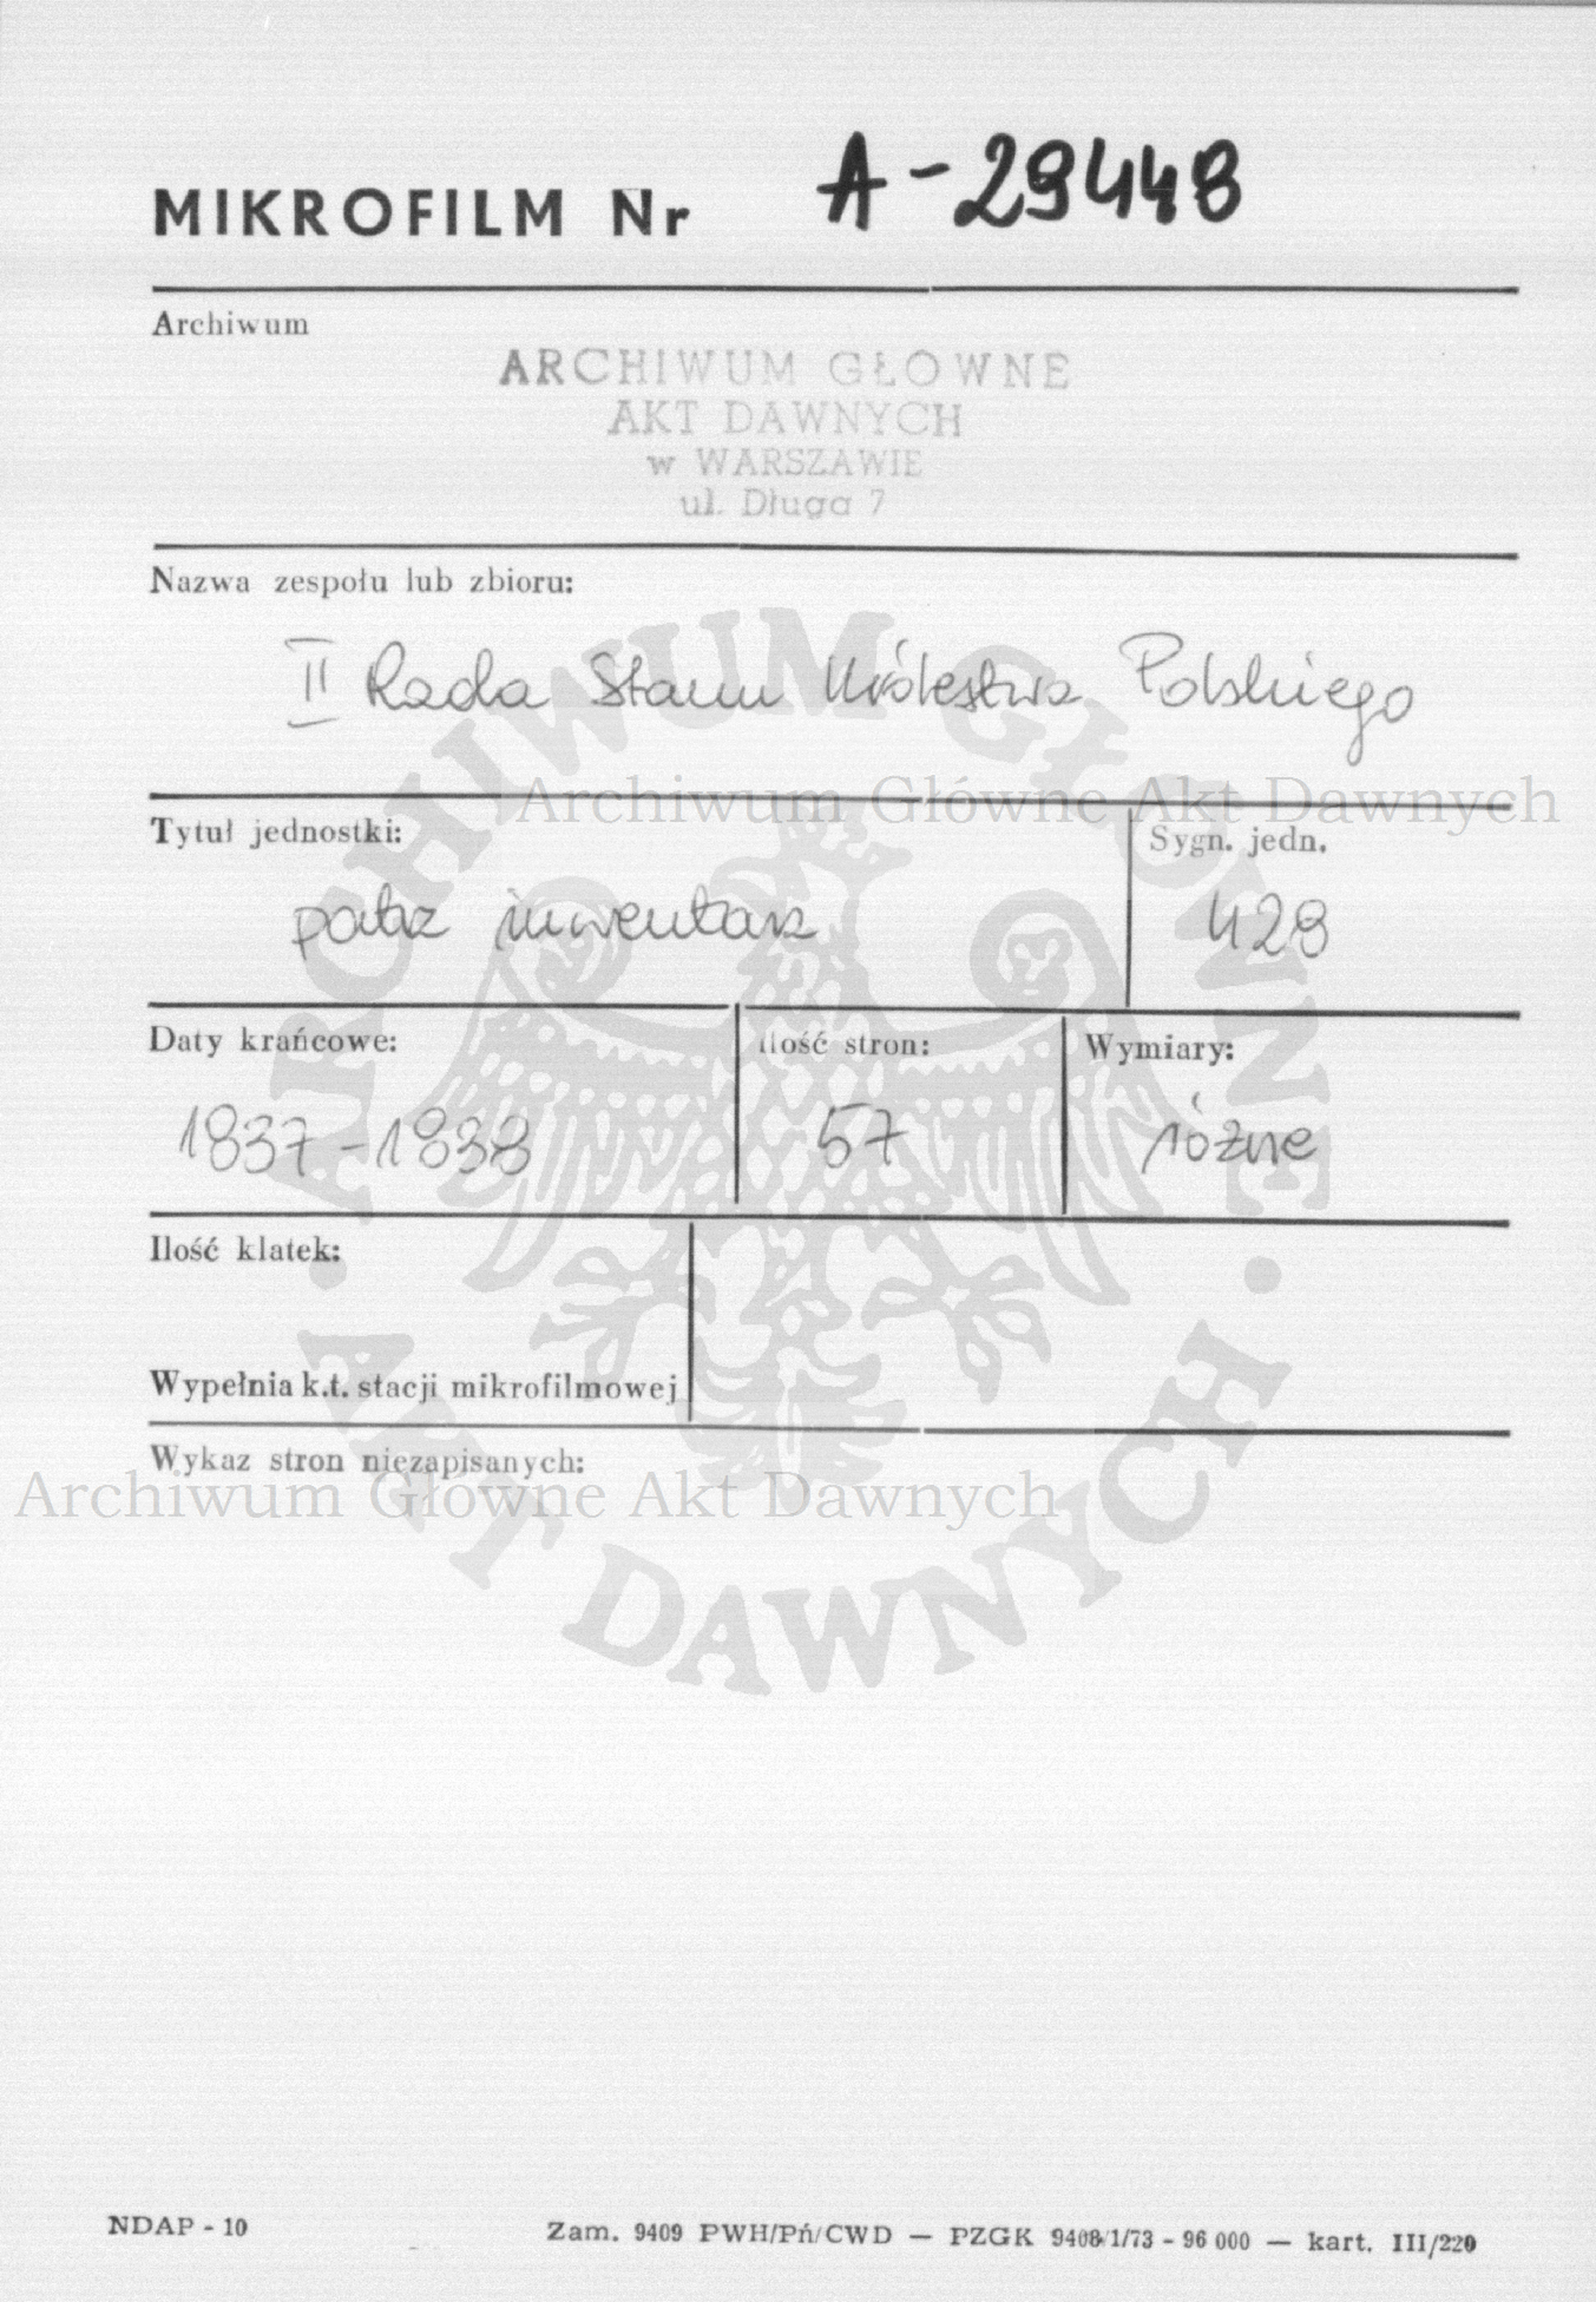 MIKROFILM Nr A-29448
Archiwum
ARCHIWUM GŁOWNE
AKT DAWNYCH
w WARSZAWIE
ul. Długa 7
Nazwa zespołu lub zbioru:
II Rada Stanu Królestwa Polskiego
Archiwum Główne Akt Dawnych
Tytuł jednostki:
Sygn. jedn.
patrz inwentarz
428
Daty krańcowe:
Ilość stron:
Wymiary:
1837-1838
57
różne
Ilość klatek:
Wypełnia k.t. stacji mikrofilmowej
Wykaz stron niezapisanych:
Archiwum Główne Akt Dawnych
ARCHIWUM GŁÓWNE
AKT DAWNYCH
NDAP - 10
Zam. 9409 PWH/Pń/CWD — PZGK 9408/1/73 - 96 000 — kart. III/220